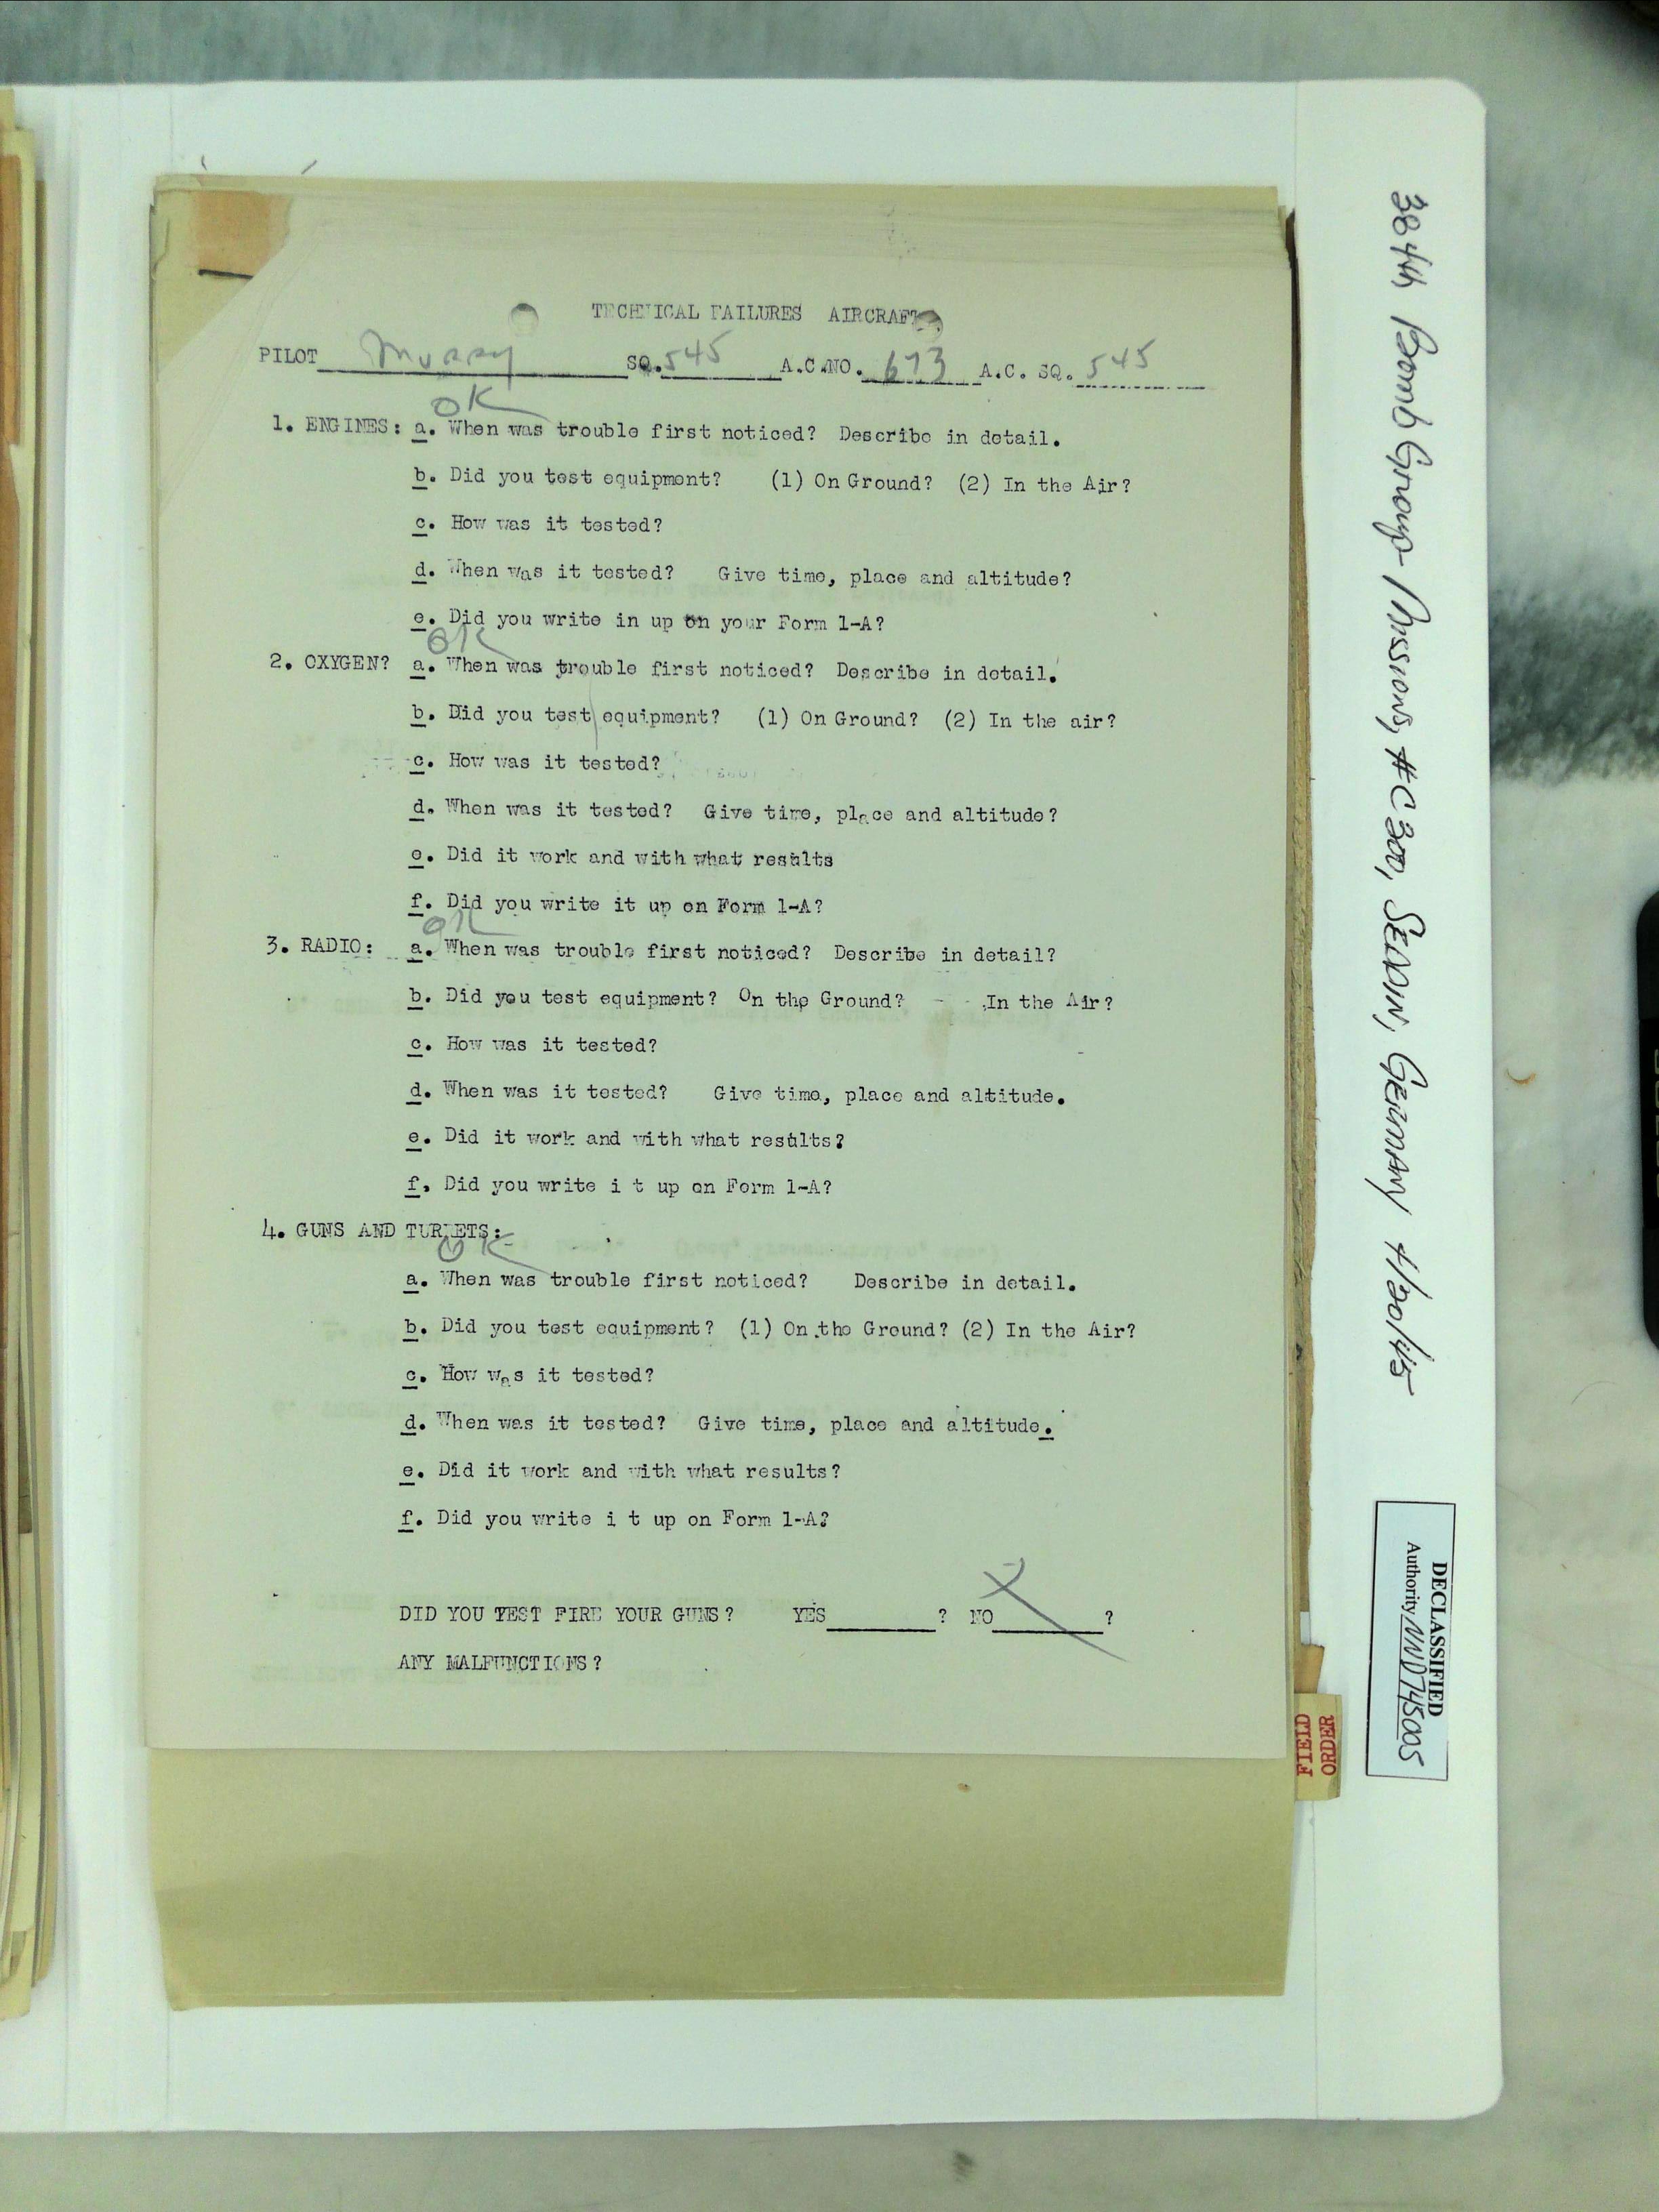 TECHNICAL FAILURES AIRCRAFT
PILOT Murray SQ. 545 A.C.NO. 673 A.C. SQ. 545
OK
1. ENGINES: a. When was trouble first noticed? Describe in detail.
b. Did you test equipment? (1) On Ground? (2) In the Air?
c. How was it tested?
d. When was it tested? Give time, place and altitude?
e. Did you write in up on your Form 1-A?
OK
2. OXYGEN? a. When was trouble first noticed? Describe in detail.
b. Did you test equipment? (1) On Ground? (2) In the air?
c. How was it tested?
d. When was it tested? Give time, place and altitude?
e. Did it work and with what results
f. Did you write it up on Form 1-A?
OK
3. RADIO: a. When was trouble first noticed? Describe in detail?
b. Did you test equipment? On the Ground? In the Air?
c. How was it tested?
d. When was it tested? Give time, place and altitude.
e. Did it work and with what results?
f. Did you write i t up on Form 1-A?
4. GUNS AND TURRETS:
OK
a. When was trouble first noticed? Describe in detail.
b. Did you test equipment? (1) On the Ground? (2) In the Air?
c. How was it tested?
d. When was it tested? Give time, place and altitude.
e. Did it work and with what results?
f. Did you write i t up on Form 1-A?
DID YOU TEST FIRE YOUR GUNS? YES ? NO X ?
ANY MALFUNCTIONS?
384th Bomb Group- Missions, #C300, Seddin, Germany 4/20/45
DECLASSIFIED
Authority NND745005
FIELD
ORDER